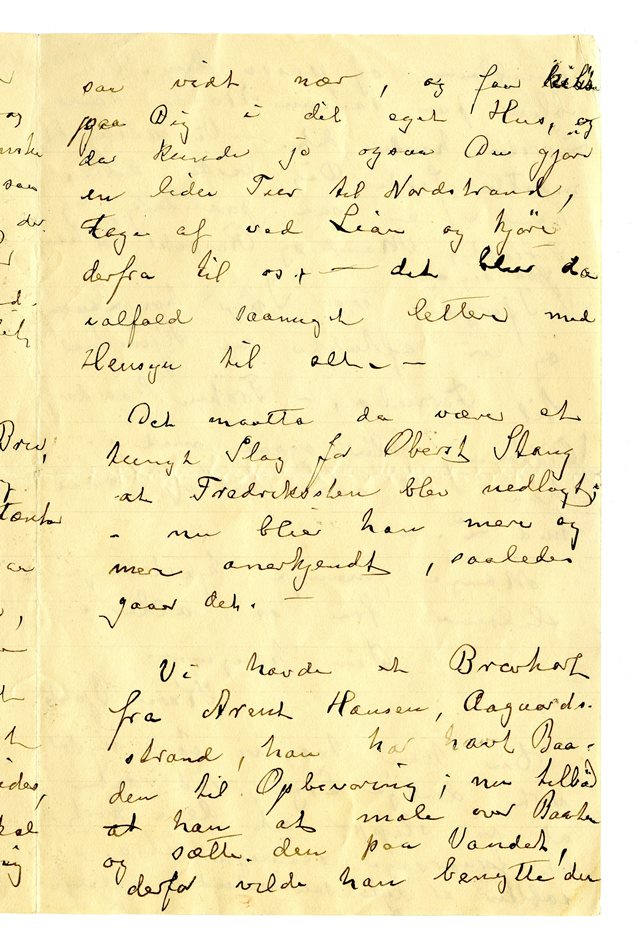 saa vidt nær, og faar hilse
paa Dig i dit eget Hus, og
da kunde jo ogsaa Du gjøre
en liden Tur til Nordstrand,
tage af ved Lian og kjöre
derfra til os, — det blir da
ialfald saameget lettere med
Hensyn til alt. —
Det maatte da være et
tungt Slag for Oberst Stang
at Fredriksten blev nedlagt;
- nu blir han mere og
mere anerkjendt, saaledes
gaar det. —
Vi havde et Brevkort
fra Arent Hansen, Aagaards-
strand, han har havt Baa-
den til Opbevaring; nu tilbød
at han at male over Baaten
og sætte den paa Vandet,
derfor vilde han benytte den
Brev,